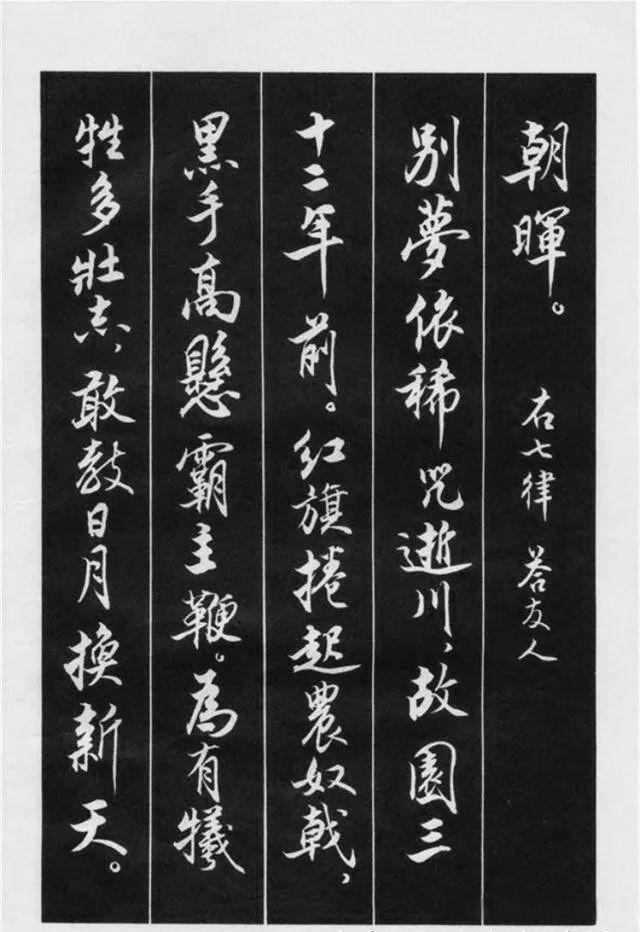 朝暉。 右七律 答友人
别夢依稀咒逝川，故園三
十二年前。红旗捲起農奴戟，
黑手高懸霸主鞭。為有犧
牲多壯志，敢教日月换新天。